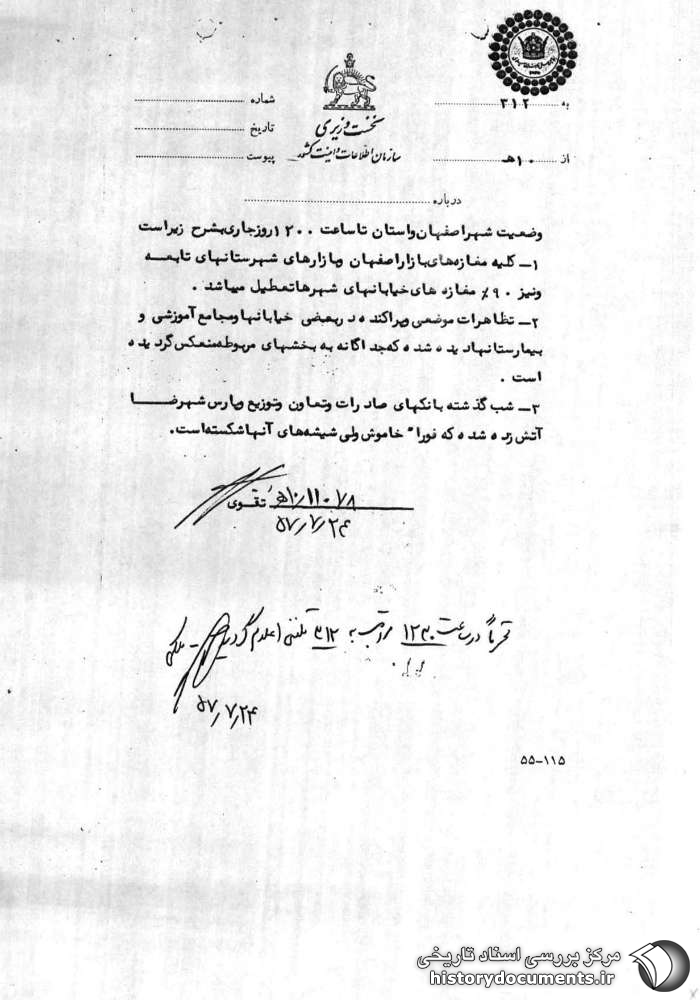 به ۳۱۲
شماره
نخست وزیری
تاریخ
سازمان اطلاعات و امنیت کشور
از ۱۰هـ
پیوست
درباره
وضعیت شهر اصفهان و استان تا ساعت ۱۲۰۰ روز جاری بشرح زیر است
۱ـ کلیه مغازه‌های بازار اصفهان و بازارهای شهرستانهای تابعه
و نیز ۹۰٪ مغازه های خیابانهای شهرها تعطیل میباشد .
۲ـ تظاهرات موضعی و پراکنده در بعضی خیابانها و مجامع آموزشی و
بیمارستانها دیده شده که جداگانه به بخشهای مربوطه منعکس گردیده
است .
۳ـ شب گذشته بانکهای صادرات و تعاون و توزیع و پارس شهرضا
آتش زده شده که فورا" خاموش ولی شیشه‌های آنها شکسته است.
تقوی
۵۷/۷/۲۴
در ساعت ۱۲۳۰ مراتب به ۳۱۲ تلفنی اعلام گردید
۵۷/۷/۲۴
۵۵-۱۱۵
مرکز بررسی اسناد تاریخی
historydocuments.ir